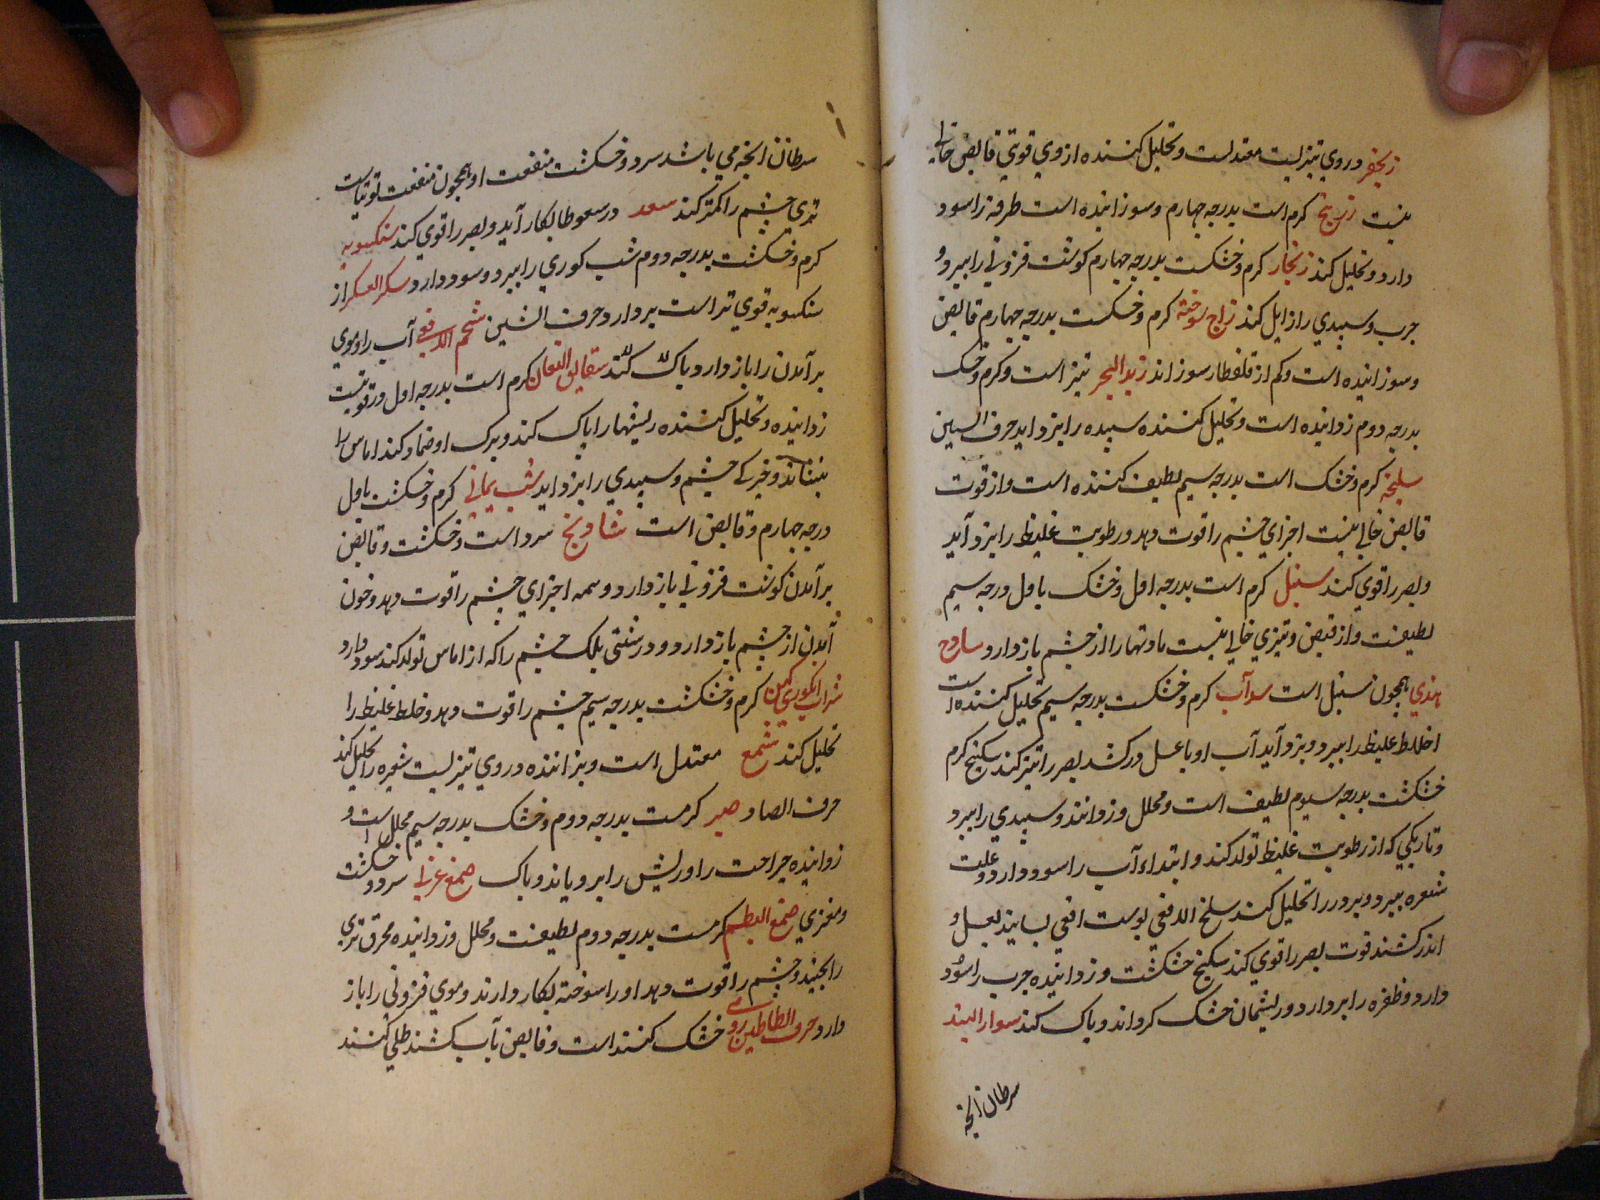 زنجفر در وي تیزیست معتدلست و تحلیل کننده از وي قوتي قابض خالي
نیست زرنیخ کرم است بدرجه چهارم و سوزاینده است طرفه را سود
دارد و تحلیل کند زنکار کرم و خشکست بدرجه چهارم کوشت فزوني را ببرد و
جرب و سپیدي را زایل کند زاج سوخته کرم و خشکست بدرجه چهارم قابض
و سوزاینده است و کم از قلقطار سوزاند زبد البحر تیز است و کرم و خشک
بدرجه دوم زداینده است و تحلیل کننده سپیده را بزداید حرف السین
سلیخه کرم و خشک است بدرجه سیم لطیف کننده است و از قوت
قابض خالي نیست اجزاي چشم را قوت دهد و رطوبت غلیظ را بزدآید
و بصر را قوي کند سنبل کرم است بدرجه اول و خشک باول درجه سیم
لطیفست و از قبض و تیزي خالي نیست مادتها را از چشم باز دارد ساذج
هندي همچون سنبل است سدآب کرم و خشکست بدرجه سیم تحلیل کننده است
اخلاط غلیظ را ببرد و بزدآید آب او با عسل درکشد بصر را تیز کند سکبینج کرم
خشکست بدرجه سیوم لطیف است و محلل و زداینده و سپیدي را ببرد
و تاریکي که از رطوبت غلیظ تولد کند و ابتداء آب را سود دارد و علت
شعیره ببرد و برد را تحلیل کند سلخ الافعي پوست افعي بسایند بعسل و
اندر کشند قوت بصر را قوي کند سکبینج خشکست و زداینده جرب را سود
دارد و ظفره را بردارد و ریشهاي خشک کرداند و پاک کند سوار الهند
سرطان الخه
سرطان الخه مي باشد سرد و خشکست منفعت او همچون منفعت توتیاست
تري چشم را کمتر کند سعد در سعوطها بکار آید و بصر را قوي کند سنکسبویه
کرم و خشکست بدرجه دوم شب کوري را ببرد و سود دارد سکر العسکر از
سنکسبویه قوي تر است بردارد حرف الشین شحم الافعي آب را و موي
برآمدن را باز دارد و پاک کند شقایق النعمان کرم است بدرجه اول و رقوتیست
زداینده و تحلیل کننده ریشها را پاک کند و برک او ضماد کند اماس را
بنشاند و خیرکي چشم و سپیدي را بزداید شب یماني کرم و خشکست باول
درجه چهارم و قابض است شادنج سرد است و خشکست و قابض
برآمدن کوشت فزوني باز دارد و سمه اجزاي چشم را قوت دهد و خون
آمدن از چشم باز دارد و درشتي پلک چشم را که از اماس تولد کند سود دارد
شراب انکوري کهن کرم و خشکست بدرجه سیم چشم را قوت دهد و خلط غلیظ را
تحلیل کند شمع معتدل است و بزاننده در وي تیزیست شعیره را تحلیل کند
حرف الصاد صبر کرمست بدرجه دوم و خشک بدرجه سیم محلل است و
زداینده جراحت را و ریش را برویاند و پاک صمغ عربي سرد و خشکست
و مغري صمغ البطم کرمست بدرجه دوم لطیفست و محلل و زداینده محرق تري
را بچیند و چشم را قوت دهد او را سوخته بکار دارند و موي فزوني را باز
دارد حرف الطا طین رومي خشک کننده است و قابض بآب کشند طلي کنند